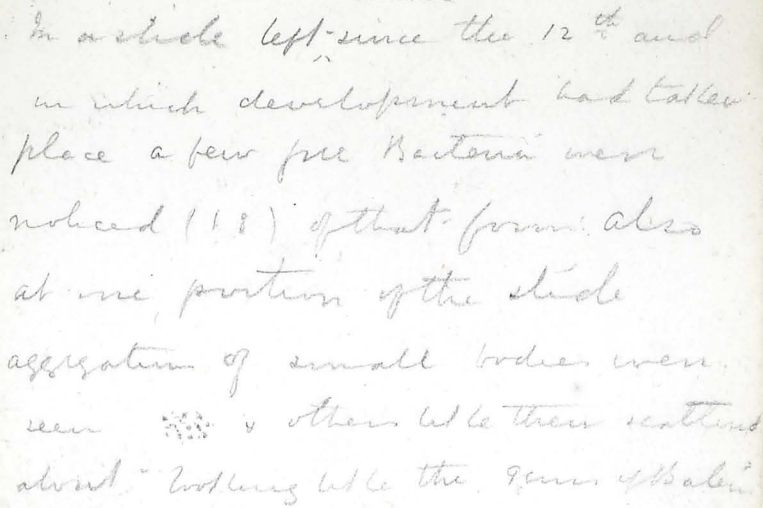 In a slide left since the 12th and
in which development had taken
place a few free Bacteria were
noticed ( ) of that form also
at one portion of the slide
aggregation of small bodies were
seen & others like them scattered
about looking like the germs of